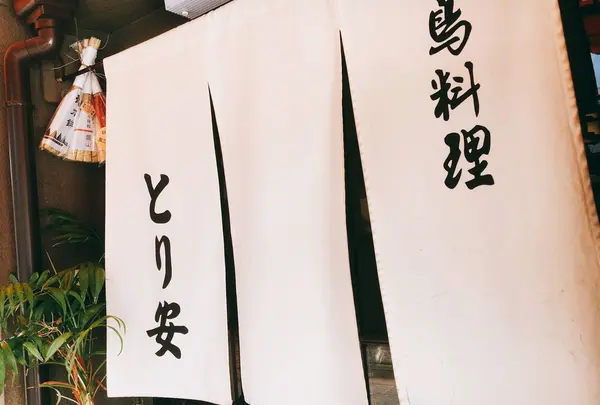 鳥料理
とり安